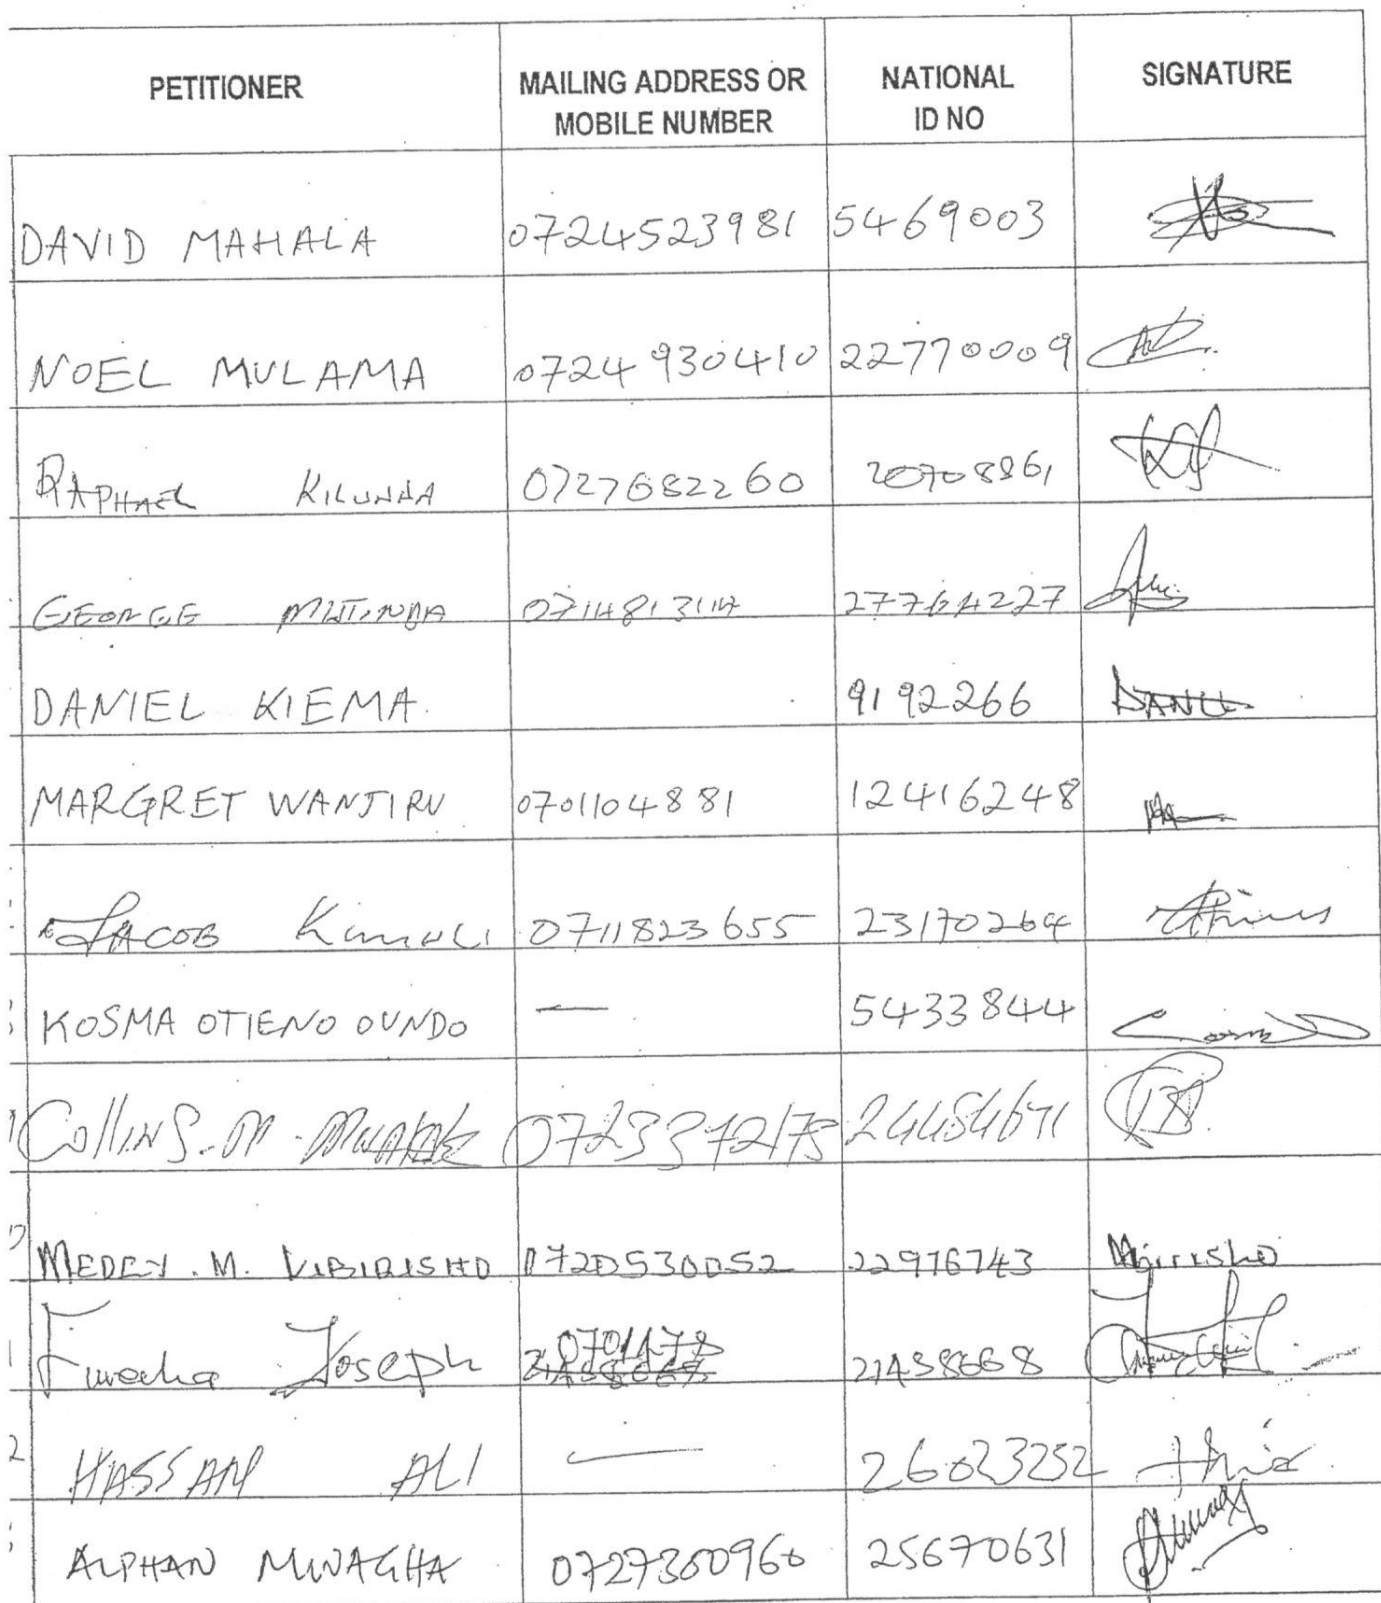 PETITIONER MAILING ADDRESS OR MOBILE NUMBER NATIONAL ID NO SIGNATURE
DAVID MAHALA 0724523981 5469003
NOEL MULAMA 0724930410 22770009
RAPHAEL KILUNDA 0727682260 20708861
GEORGE 27764227
DANIEL KIEMA. 9192266
MARGRET WANJIRU 0701104881 12416248
JACOB 0711823655 23170264
KOSMA OTIENO OUNDO — 5433844
Collins. M.
MEDLY. M. VIBIRISHO 0720530052 22976743
Furaha Joseph 21438668
HASSAN ALI — 26023252
ALPHAN MWAGHA 0727300960 25670631